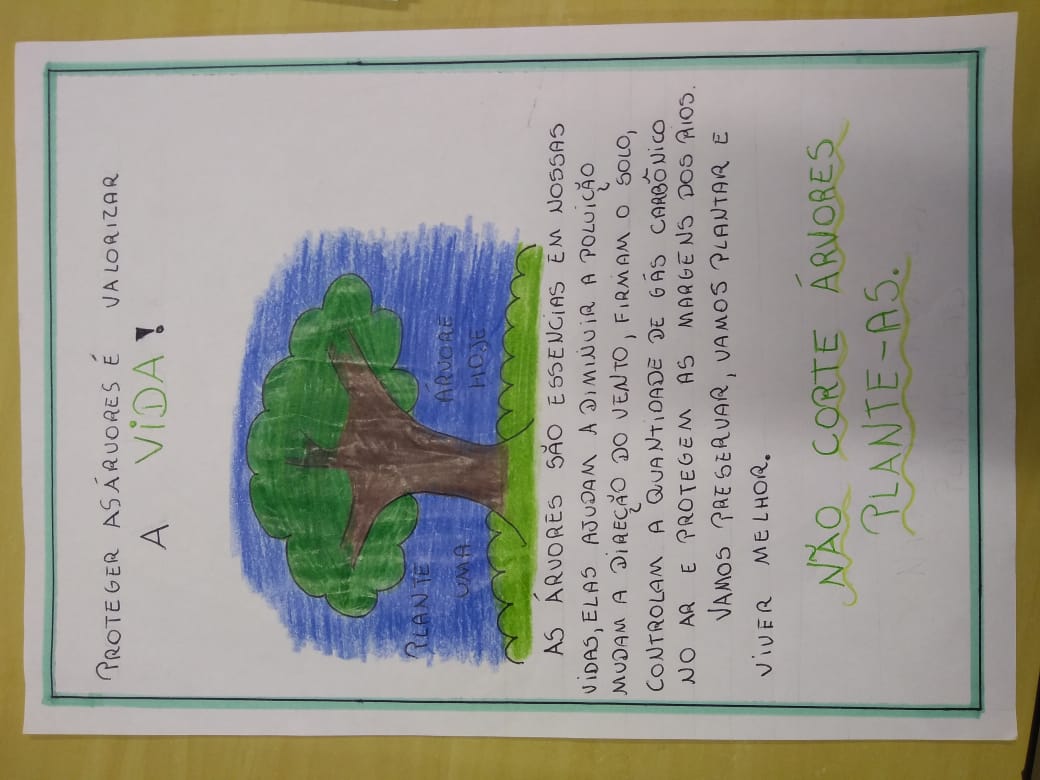 PROTEGER AS ÁRVORES É VALORIZAR
A ViDA!
PLANTE
UMA
ÁRVORE
HOJE
AS ÁRVORES SÃO ESSENCIAS EM NOSSAS
VIDAS, ELAS AJUDAM A DIMINUIR A POLUIÇÃO
MUDAM A DIREÇÃO DO VENTO, FIRMAM O SOLO,
CONTROLAM A QUANTIDADE DE GÁS CARBÔNICO
NO AR E PROTEGEM AS MARGENS DOS RIOS.
VAMOS PRESERVAR, VAMOS PLANTAR E
VIVER MELHOR.
NÃO CORTE ÁRVORES
PLANTE-AS.